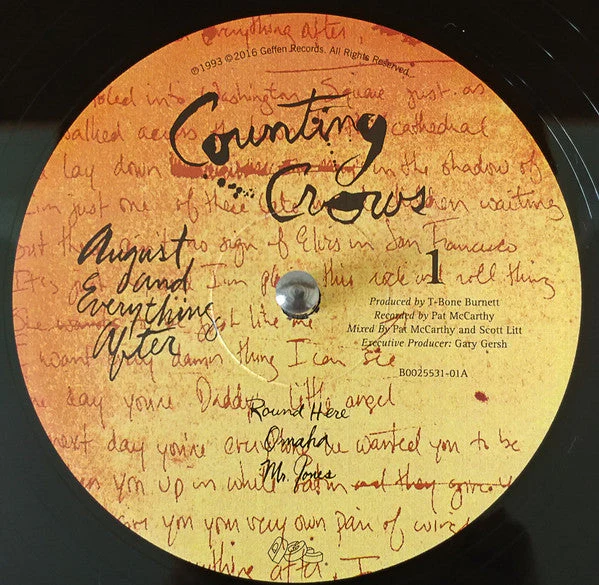 everything after,
℗1993 ©2016 Geffen Records. All Rights Reserved.
into Washington Square just as
walked across the cathedral
lay down in the shadow of
I'm just one of these waiting
but there's no sign of Elvis in San Francisco
Counting
Crows
August
and
Everything
After
1
It's just I'm this rock and roll thing
like me
want damn thing I can see
day you're Daddy's little angel
Produced by T-Bone Burnett
Recorded by Pat McCarthy
Mixed By Pat McCarthy and Scott Litt
Executive Producer: Gary Gersh
B0025531-01A
Round Here
Omaha
Mr. Jones
next day you're everyone wanted you to be
you up in white satin and they give
you your very own pair of wings
anything after, I